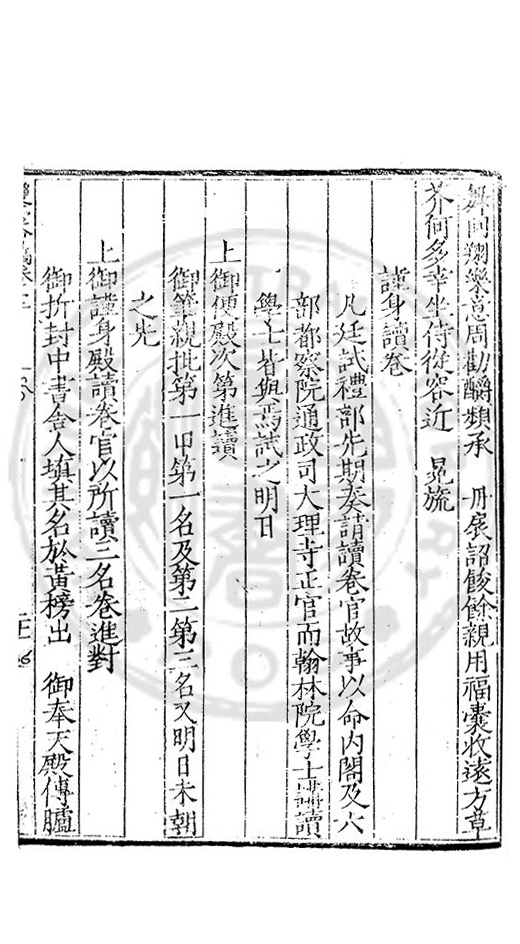 舞回翔樂意周勸酬頻承 丹扆詔餕餘親用福囊收遠方草
芥何多幸坐侍從容近 冕旒
謹身讀卷
凡廷試禮部先期奏請讀卷官故事以命內閣及六
部都察院通政司大理寺正官而翰林院學士講讀
學士皆與焉試之明日
上御便殿次第進讀
御筆親批第一甲第一名及第二第三名又明日未朝
之先
上御謹身殿讀卷官以所讀三名卷進對
御拆封中書舍人填其名於黃榜出 御奉天殿傳臚